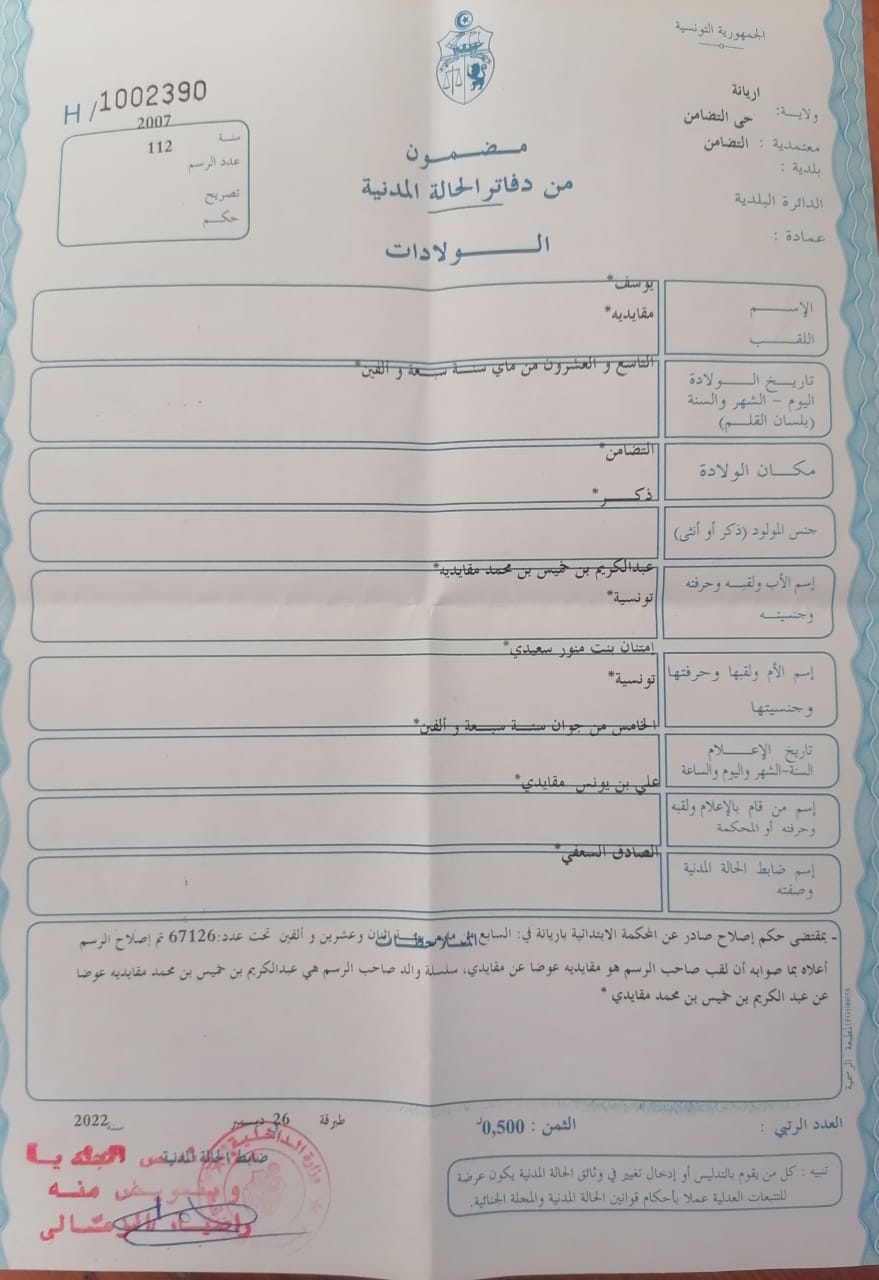 الجمهورية التونسية
H/1002390
ولاية: اريانة
معتمدية : حى التضامن
بلدية : التضامن
الدائرة البلدية
عمادة :
سنة 2007
عدد الرسم 112
تصريح
حكم
مضمون
من دفاتر الحالة المدنية
الولادات
الإسم يوسف*
اللقب مقايديه*
تاريخ الولادة
اليوم - الشهر والسنة
(بلسان القلم)
التاسع و العشرون من ماي سنة سبعة و ألفين*
مكان الولادة
التضامن*
جنس المولود (ذكر أو أنثى)
ذكر*
إسم الأب ولقبه وحرفته
وجنسيته
عبدالكريم بن خميس بن محمد مقايديه*
تونسية*
إسم الأم ولقبها وحرفتها
وجنسيتها
إمتنان بنت منور سعيدي*
تونسية*
تاريخ الإعلام
السنة-الشهر واليوم والساعة
الخامس من جوان سنة سبعة و ألفين*
إسم من قام بالإعلام ولقبه
وحرفته أو المحكمة
علي بن يونس مقايدي*
إسم ضابط الحالة المدنية
وصفته
الصادق السعفي*
الملاحظات
- بمقتضى حكم إصلاح صادر عن المحكمة الابتدائية باريانة في: السابع وعشرين و ألفين تحت عدد:67126 تم إصلاح الرسم
أعلاه بما صوابه أن لقب صاحب الرسم هو مقايديه عوضا عن مقايدي، سلسلة والد صاحب الرسم هي عبدالكريم بن خميس بن محمد مقايديه عوضا
عن عبد الكريم بن خميس بن محمد مقايدي *
المطبعة الرسمية
العدد الرتبي :
الثمن : 0,500د
طبرقة في 26 ديسمبر سنة 2022
ضابط الحالة المدنية
وزارة الداخلية
وبتفويض منه
تنبيه : كل من يقوم بالتدليس أو إدخال تغيير في وثائق الحالة المدنية يكون عرضة
للتتبعات العدلية عملا بأحكام قوانين الحالة المدنية والمجلة الجنائية.